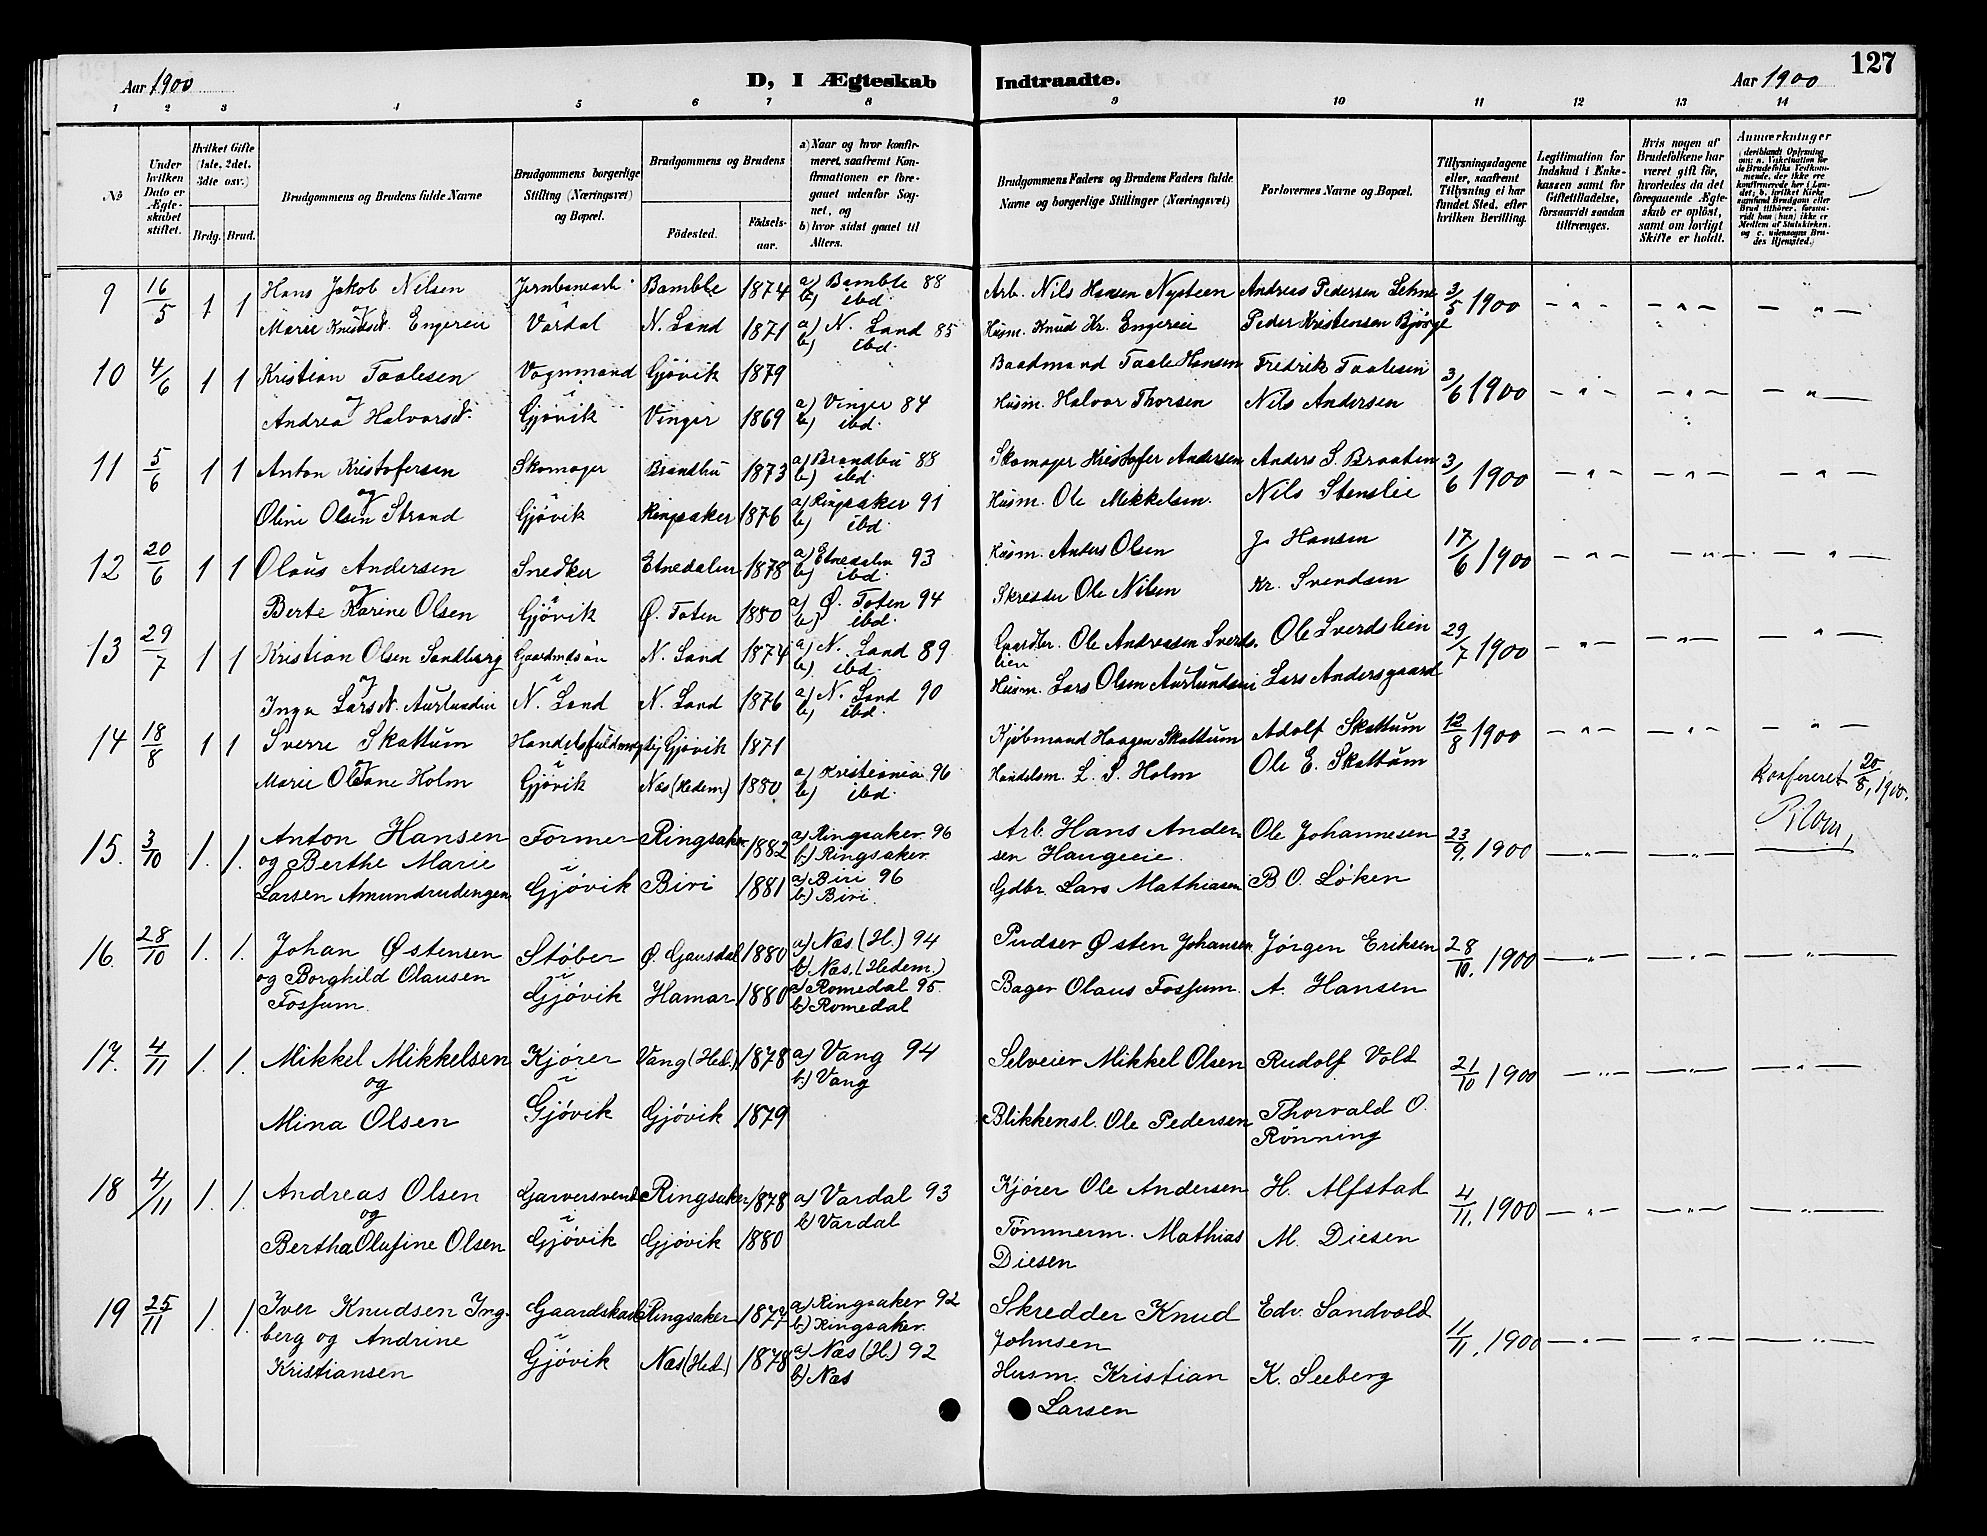 127
Aar 1900
D, I Ægteskab Indtraadte.
Aar 1900
1 2 3 4 5 6 7 8 9 10 11 12 13 14
№
Under hvilken Dato er Ægteskabet stiftet.
Hvilket Gifte (1ste, 2det, 3dte osv.)
Brdg. Brud.
Brudgommens og Brudens fulde Navne
Brudgommens borgerlige Stilling (Næringsvei) og Bopæl.
Brudgommens og Brudens
Födested. Födsels-aar.
a) Naar og hvor konfirmeret, saafremt Konfirmationen er foregaaet udenfor Sognet, og
b) hvor sidst gaaet til Alters.
Brudgommens Faders og Brudens Faders fulde Navne og borgerlige Stillinger (Næringsvei)
Forlovernes Navne og Bopæl.
Tillysningsdagene eller, saafremt Tillysning ei har fundet Sted, efter hvilken Bevilling.
Legitimation for Indskud i Enkekassen samt for Giftetilladelse, forsaavidt saadan tiltrænges.
Hvis nogen af Brudefolkene har været gift før, hvorledes da det foregaaende Ægteskab er oplöst, samt om lovligt Skifte er holdt.
Anmærkninger
9 16/5 1 1 Hans Jakob Nilsen Jernbanearb. Bamble 1874 a) Bamble 88 Arb. Nils Hansen Nysteen Andreas Pedersen Lehne 3/5 1900 – " – – " – – " –
og i b) ibd.
Marie Knudsd. Engereie Vardal N. Land 1871 a) N. Land 85 Husm. Knud Kr. Engereie Peder Kristensen Bjørge
b) ibd.
10 4/6 1 1 Kristian Taalesen Vognmand Gjøvik 1879 Baadmand Taale Hansen Fredrik Taalesen 3/6 1900 – " – – " – – " –
og i
Andrea Halvorsd. Gjøvik Vinger 1869 a) Vinger 84 Husm. Halvor Thorsen Nils Andersen
b) ibd.
11 5/6 1 1 Anton Kristofersen Skomager Brandbu 1873 a) Brandbu 88 Skomager Kristofer Andersen Anders S. Braaten 3/6 1900 – " – – " – – " –
og b) ibd.
Oline Olsen Strand Gjøvik Ringsaker 1876 a) Ringsaker 91 Husm. Ole Mikkelsen. Nils Stenslie
b) ibd.
12 20/6 1 1 Olaus Andersen Snedker Etnedalen 1878 a) Etnedalen 93 Husm. Anders Olsen J. Hansen 17/6 1900 – " – – " – – " –
og i b) ibd.
Berte Karine Olsen Gjøvik Ø. Toten 1880 a) Ø. Toten 94 Skredder Ole Nilsen Kr. Svendsen
b) ibd.
13 29/7 1 1 Kristian Olsen Sandberg Gaardmdsøn N. Land 1874 a) N. Land 89 Gaardbr. Ole Andreasen Sverds- Ole Sverdslien 29/7 1900 – " – – " – – " –
og i b) ibd. lien
Inga Larsd. Aurlundeie N. Land N. Land 1876 a) N. Land 90 Husm. Lars Olsen Aurlundseie Lars Andersgaard
b) ibd.
14 18/8 1 1 Sverre Skattum Handelsfuldmægtig Gjøvik 1871 Kjøbmand Haagen Skattum Adolf Skattum 12/8 1900 – " – – " – – " –
og i
Marie Oleane Holm Gjøvik Næs (Hedem) 1880 a) Kristiania 96 Handelsm. L. S. Holm Ole E. Skattum
b) ibd.
Konfereret 20/8, 1900.
15. 3/10 1. 1. Anton Hansen Former Ringsaker 1882 a) Ringsaker 96 Arb. Hans Ander- Ole Johannesen 23/9. 1900 – " – – " –
og Berthe Marie i b) Ringsaker. sen Haugeeie.
Larsen Amundrudengen Gjøvik Biri 1881 a) Biri 96 Gdbr. Lars Mathiasen B. O. Løken
b) Biri.
16. 28/10 1. 1. Johan Østensen Støber Ø. Gausdal 1880 a) Næs (H.) 94 Pudser Østen Johansen Jørgen Eriksen 28/10. 1900 – " – – " – – " –
og Borghild Olausen i b) Næs. (Hedem.)
Fossum. Gjøvik Hamar 1880 a) Romedal 95. Bager Olaus Fossum. A. Hansen
b) Romedal
17. 4/11 1. 1. Mikkel Mikkelsen Kjører Vang (Hed.) 1878 a) Vang 94 Selveier Mikkel Olsen Rudolf Vold 21/10 1900 – " – – " – – " –
og i b) Vang
Mina Olsen Gjøvik Gjøvik 1879 Blikkensl. Ole Pedersen Thorvald O.
Rønning
18 4/11 1. 1. Andreas Olsen Garversvend Ringsaker 1878 a) Vardal 93 Kjører Ole Andersen H. Alfstad 4/11. 1900 – " – – " – – " –
og i b) Vardal
Bertha Olufine Olsen Gjøvik Gjøvik 1880 Tømmerm. Mathias M. Diesen
Diesen
19 25/11 1. 1. Iver Knudsen Ing- Gaardskarl Ringsaker 1877 a) Ringsaker 92 Skredder Knud Edv. Sandvold 11/11. 1900 – " – – " – – " –
berg og Andrine i b) Ringsaker. Johnsen
Kristiansen Gjøvik Næs (Hed.) 1878 a) Næs (H.) 92 Husm. Kristian K. Seeberg
b) Næs Larsen